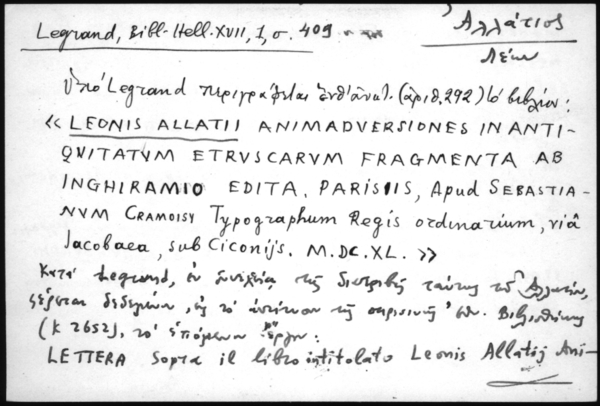 Legrand, Bibl. Hell. XVII, 1, σ. 409
Ἀλλάτιος
Λέων
Ὑπὸ Legrand περιγράφεται ἐνθ' ἀνωτ. (ἀριθ. 292) τὸ βιβλίον:
« LEONIS ALLATII ANIMADVERSIONES IN ANTI-
QVITATVM ETRVSCARVM FRAGMENTA AB
INGHIRAMIO EDITA. PARISIIS, Apud SEBASTIA-
NVM CRAMOISY Typographum Regis ordinarium, viâ
Jacobaea, sub Ciconijs. M.DC.XL. »
Κατὰ Legrand, ἐν συνεχείᾳ τῆς διατριβῆς ταύτης τοῦ Ἀλλατίου,
δεδεμένον, εἰς τὸ τῆς παρισινῆς Ἐθν. Βιβλιοθήκης
(K 2652), τὸ ἑπόμενον ἔργον:
LETTERA sopra il libro intitolato Leonis Allatij Ani-